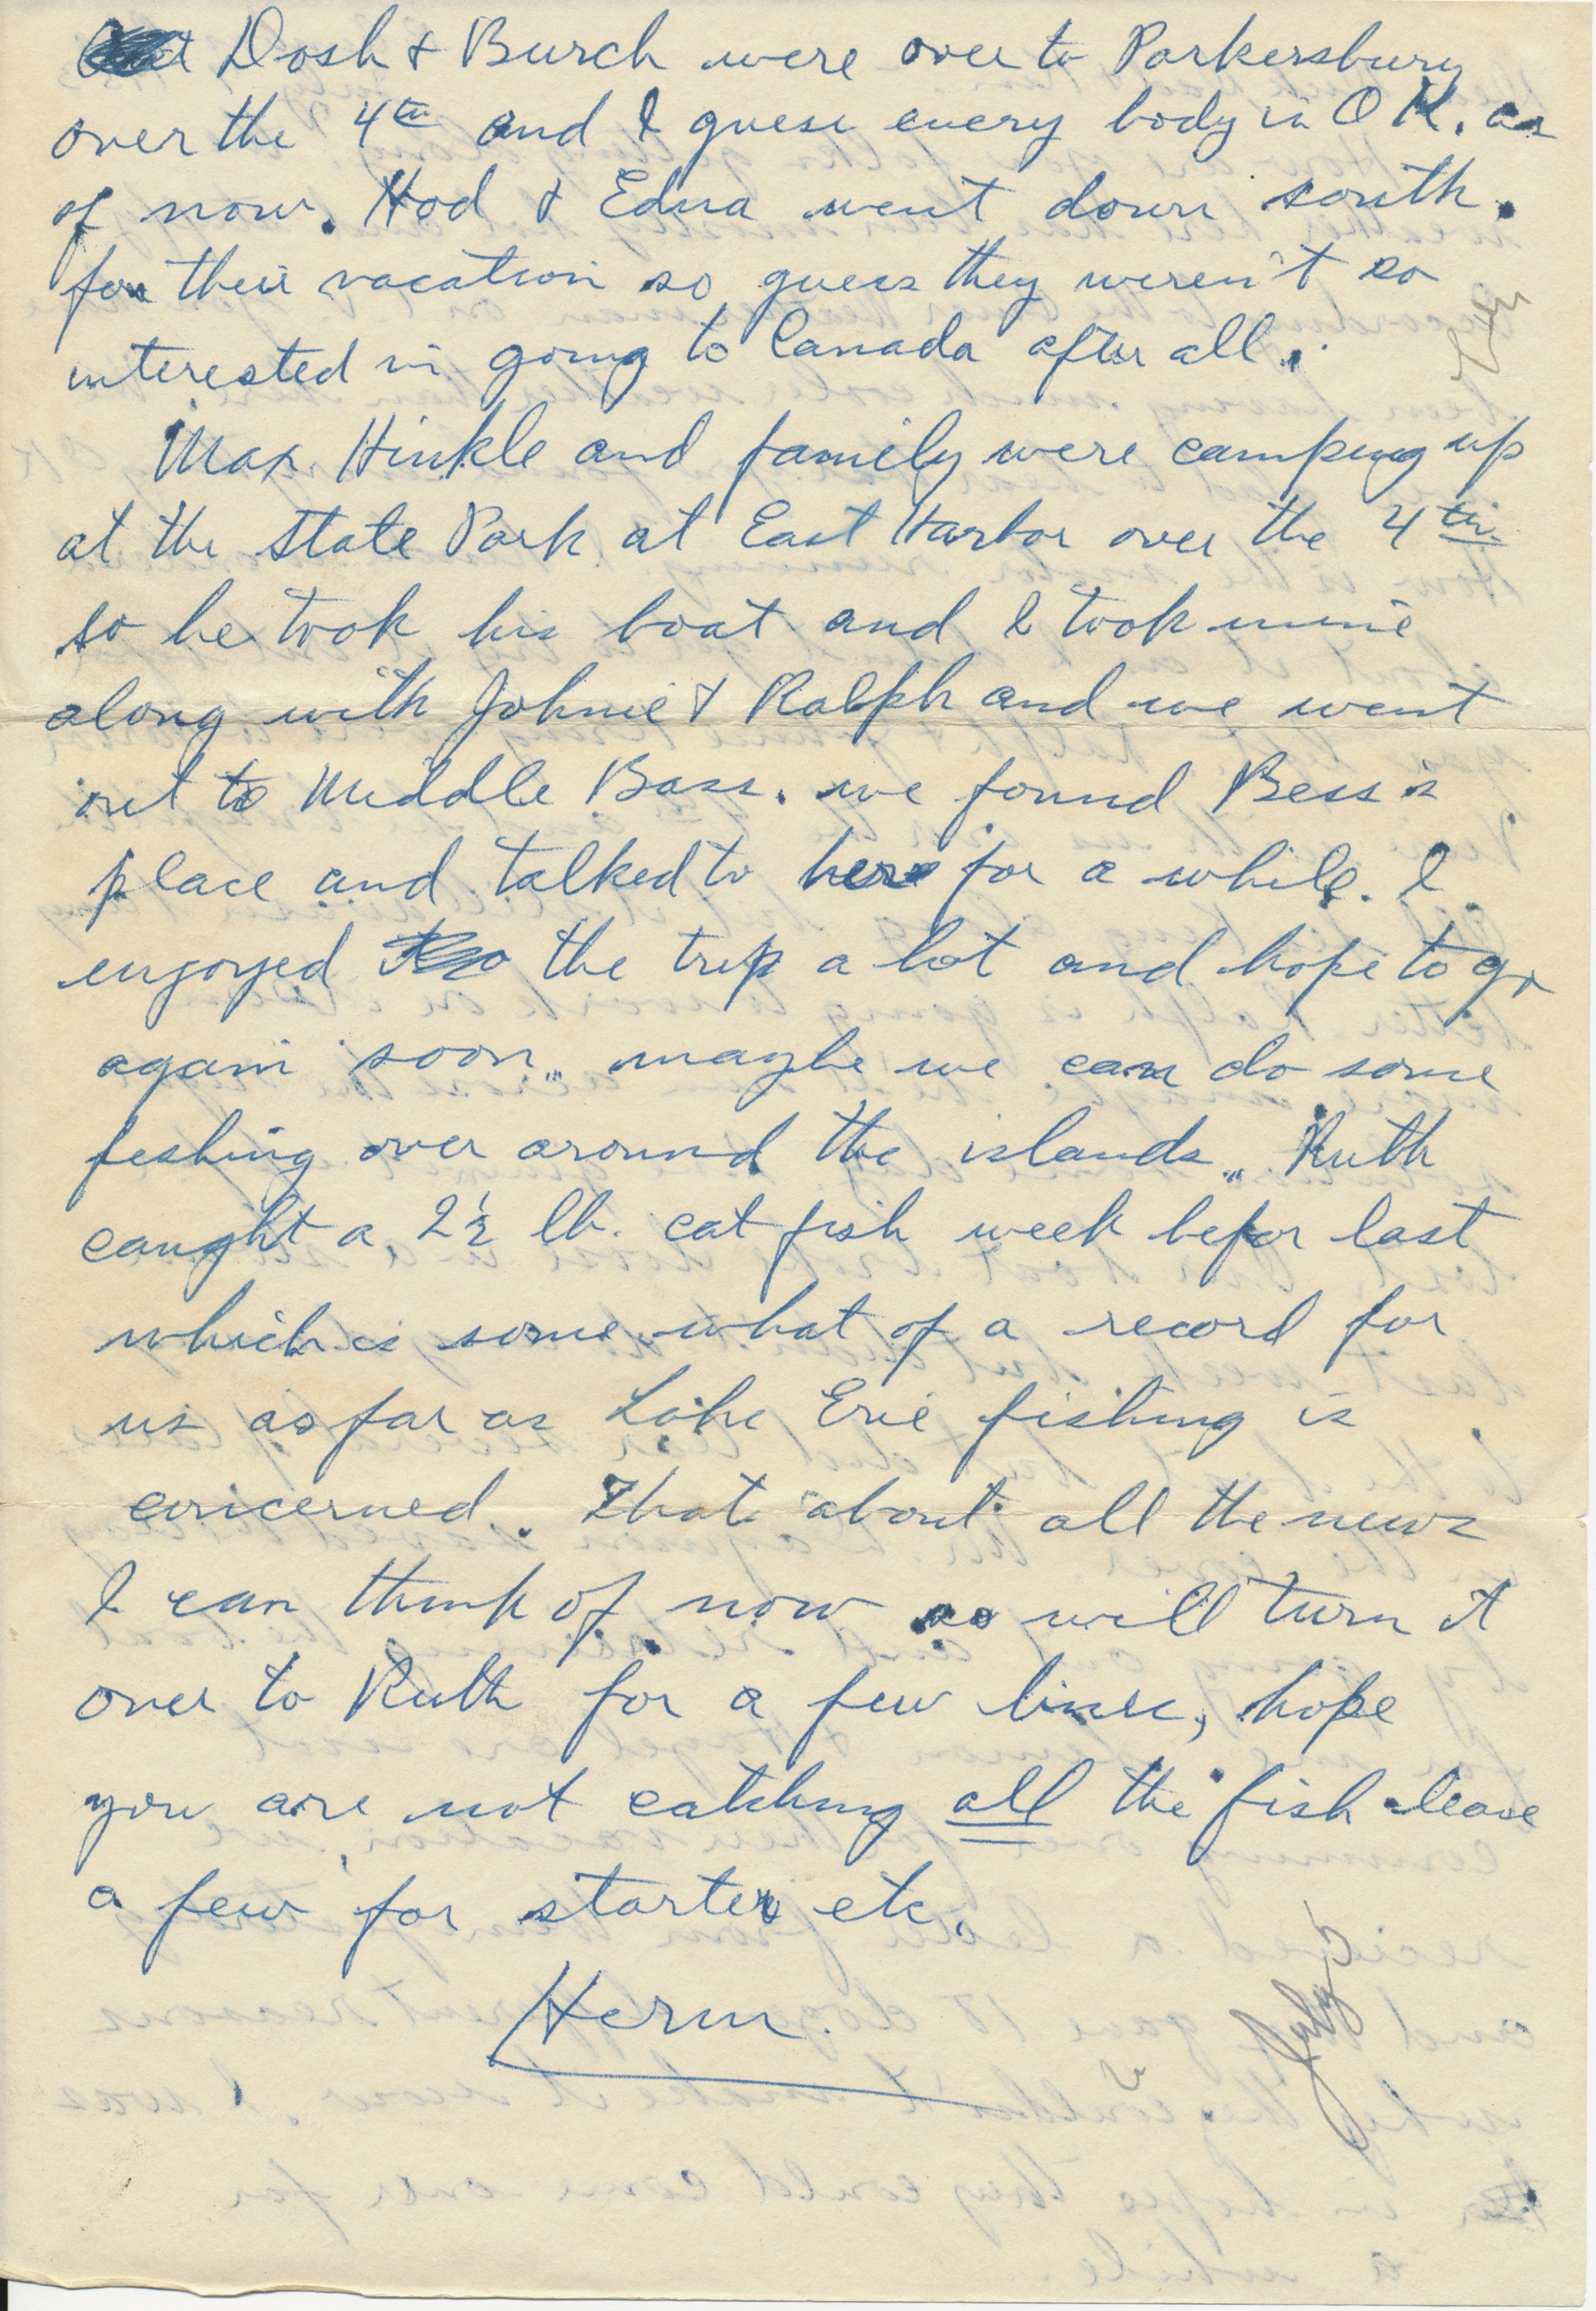 Dosh & Burch were over to Parkersburg
over the 4th and I guess every body is O K. as
of now. Hod & Edna went down south.
for their vacation so guess they weren't so
interested in going to Canada after all.
Max Hinkle and family were camping up
at the State Park at East Harbor over the 4th
so he took his boat and I took mine
along with Johnie & Ralph and we went
out to Middle Bass. we found Bess's
place and talked to her for a while. I
enjoyed the trip a lot and hope to go
again soon, maybe we can do some
feshing over around the islands, Ruth
caught a 2½ lb. cat fish week befor last
which is some what of a record for
us as far as Lake Erie fishing is
concerned. That about all the news
I can think of now so will turn it
over to Ruth for a few lines, hope
you are not catching all the fish leave
a few for starters etc.
Herm
July 5